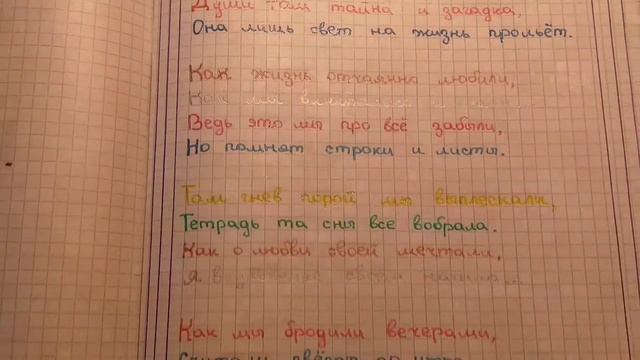 Души там тайна и загадка,
Она лишь свет на жизнь прольёт.
Как жизнь отчаянно любили,
Как мы
Ведь это мы про всё забыли,
Но помнят строки и листы.
Там гнев порой мы выплескали,
Тетрадь та сны все вобрала.
Как о любви своей мечтали,
Я в своей
Как мы бродили вечерами,